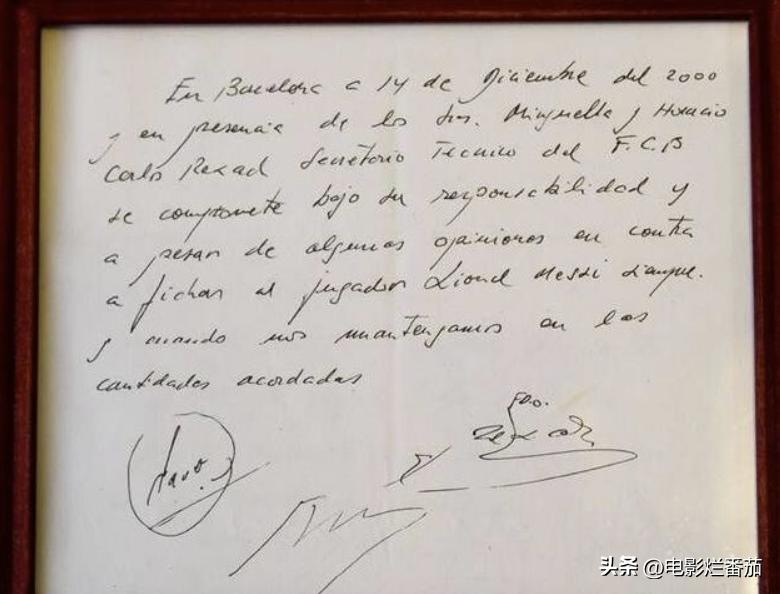 En Barcelona a 14 de Diciembre del 2000
y en presencia de los Srs. Minguella y Horacio
Carlos Rexach Secretario Tecnico del F.C.B
se compromete bajo su responsabilidad y
a pesar de algunas opiniones en contra
a fichar al jugador Lionel Messi siempre.
y cuando nos mantengamos en las
cantidades acordadas
Fdo.
头条 @电影烂番茄